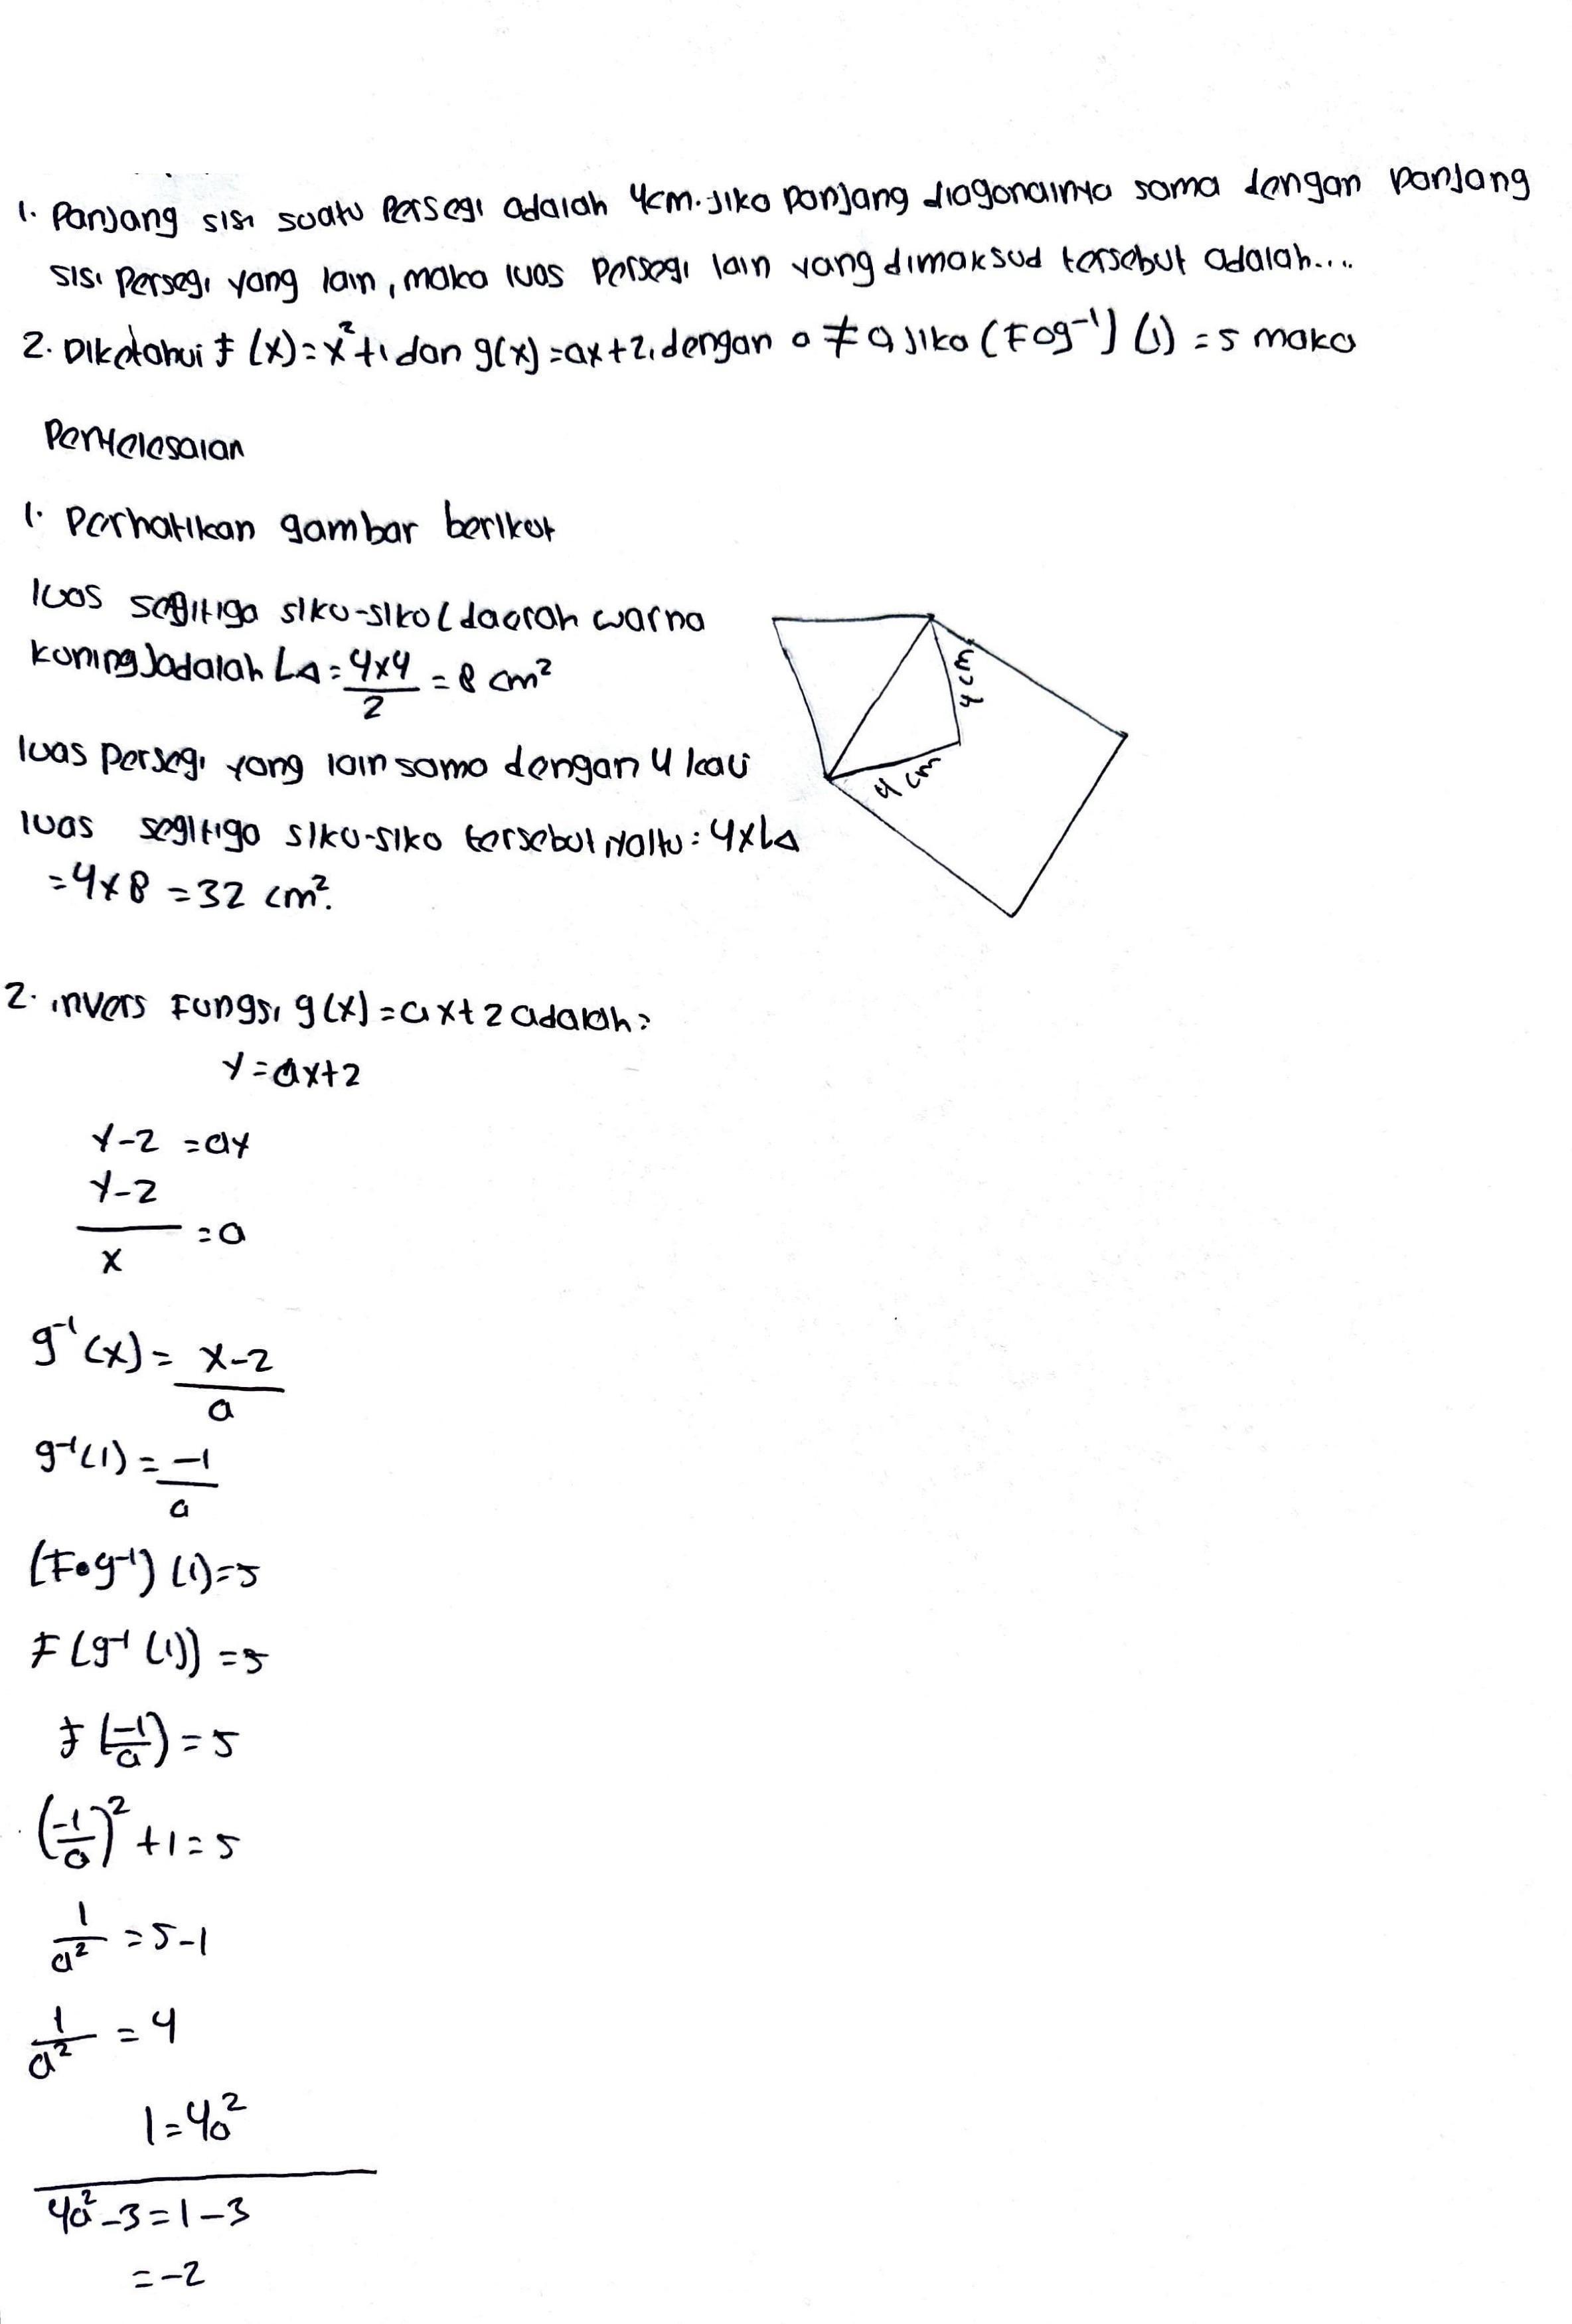 1. Panjang sisi suatu Persegi adalah 4cm. Jika panjang diagonalnya sama dengan panjang
sisi persegi yang lain, maka luas persegi lain yang dimaksud tersebut adalah....
2. Diketahui f(x)=x²+1 dan g(x)=ax+2, dengan a ≠ 0, jika (Fog⁻¹)(1)=5 maka
Penyelesaian
1. Perhatikan gambar berikut
luas segitiga siku-siku (daerah warna
kuning) adalah L△ = 4x4/2 = 8 cm²
4 cm
4 cm
luas persegi yang lain sama dengan 4 kali
luas segitiga siku-siku tersebut yaitu: 4xL△
=4x8 =32 cm².
2. invers Fungsi g(x)=ax+2 adalah:
y=ax+2
y-2 =ay
y-2
/x =a
g⁻¹(x)= x-2/a
g⁻¹(1)= -1/a
(Fog⁻¹)(1)=5
F(g⁻¹(1))=5
f(-1/a)=5
(-1/a)²+1=5
1/a² =5-1
1/a² =4
1=4a²
4a²-3=1-3
=-2